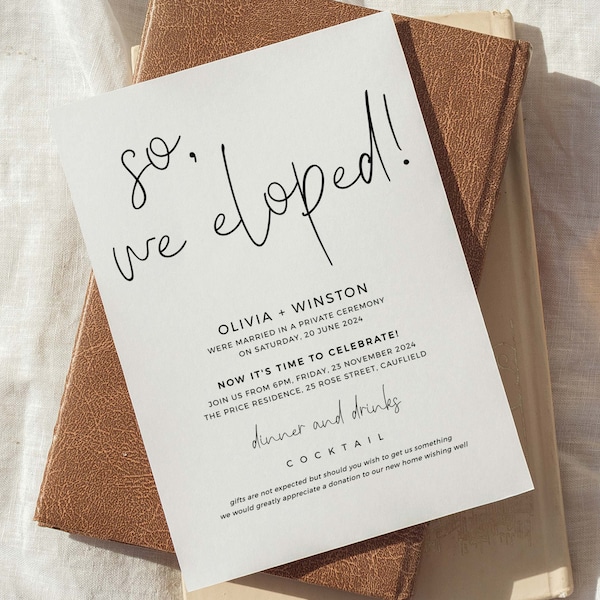 so,
we eloped!
OLIVIA + WINSTON
WERE MARRIED IN A PRIVATE CEREMONY
ON SATURDAY, 20 JUNE 2024
NOW IT'S TIME TO CELEBRATE!
JOIN US FROM 6PM, FRIDAY, 23 NOVEMBER 2024
THE PRICE RESIDENCE, 25 ROSE STREET, CAUFIELD
dinner and drinks
COCKTAIL
gifts are not expected but should you wish to get us something
we would greatly appreciate a donation to our new home wishing well